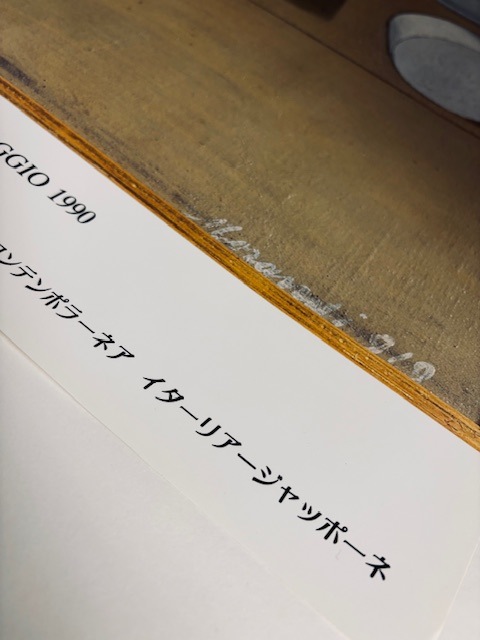 GGIO 1990
コンテンポラーネア イターリアージャッポーネ